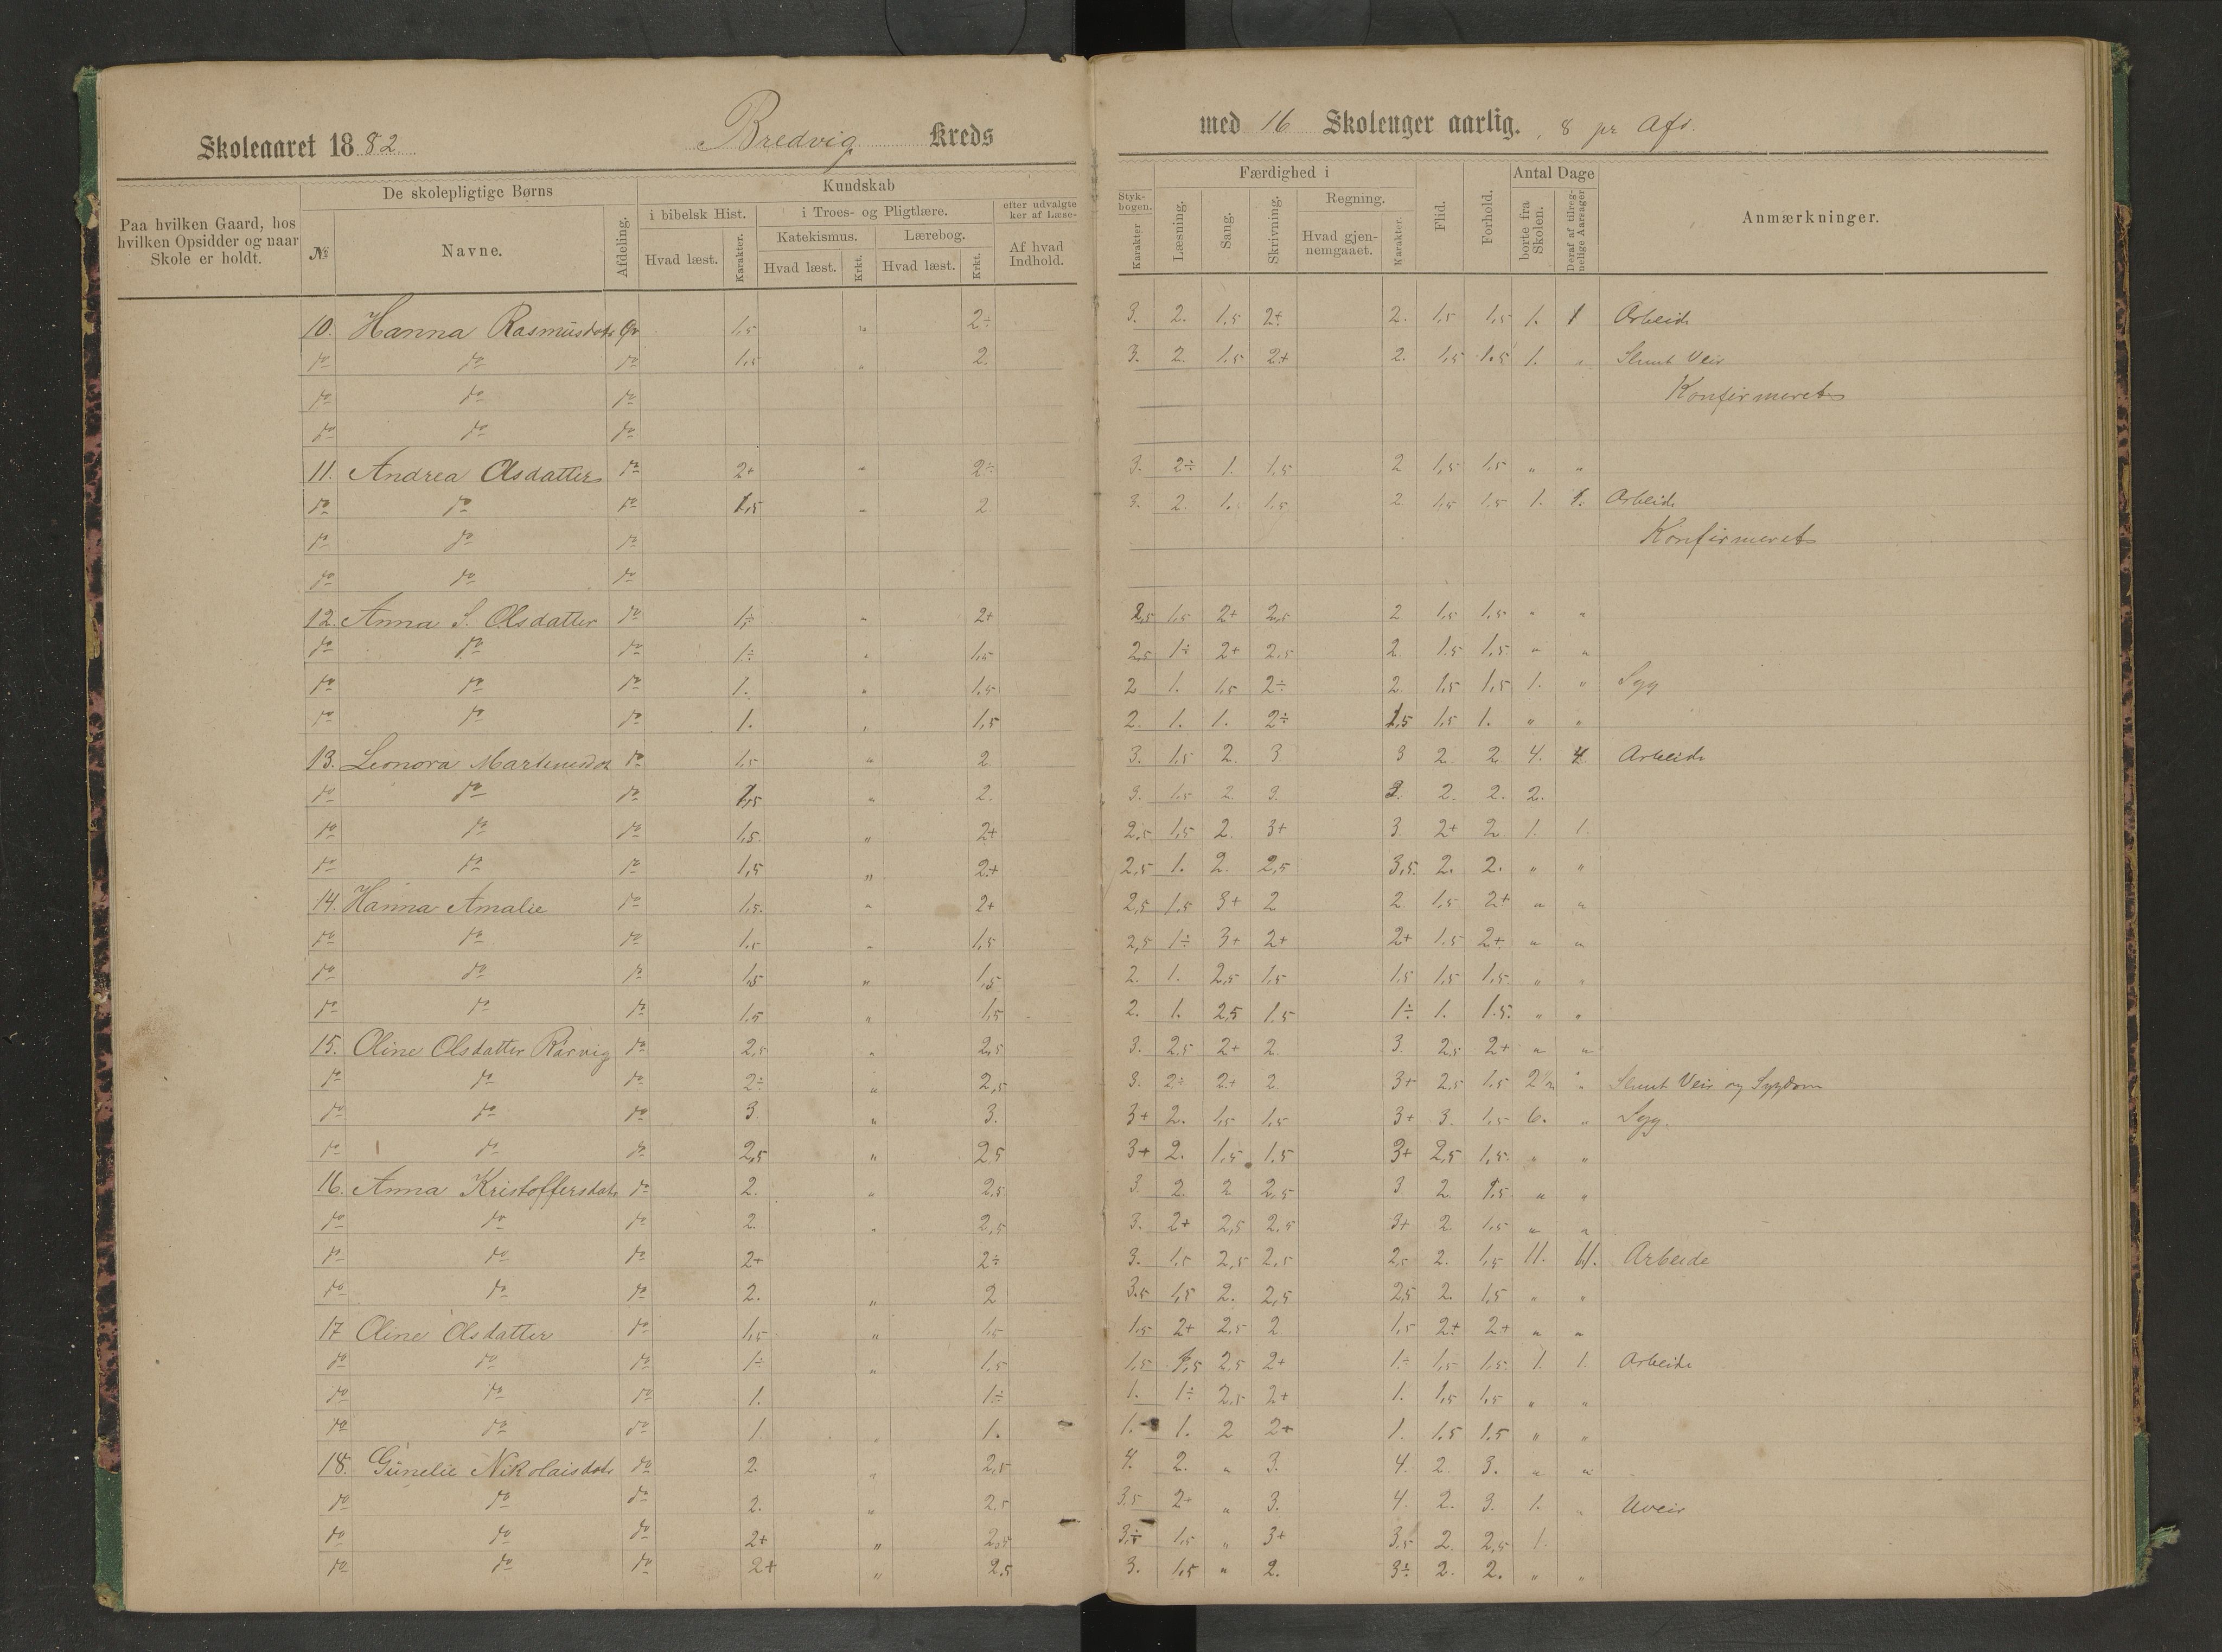 Skoleaaret 1882. Bredvig Kreds
med 16 Skoleuger aarlig. , 8 pr Afd.
Paa hvilken Gaard, hos hvilken Opsidder og naar Skole er holdt.
De skolepligtige Børns
№ Navne. Afdeling.
Kundskab
i bibelsk Hist. i Troes- og Pligtlære. efter udvalgte
ker af Læse-
Katekismus. Lærebog.
Hvad læst. Karakter. Hvad læst. Krkt. Hvad læst. Krkt. Af hvad Indhold.
Styk-bogen. Karakter
Færdighed i
Læsning. Sang. Skrivning. Regning. Hvad gjen-nemgaaet. Karakter.
Flid. Forhold.
Antal Dage
borte fra Skolen. Deraf af tilreg-nelige Aarsager
Anmærkninger.
10. Hanna Rasmusdatr Øv 1,5 " 2÷ 3. 2. 1,5 2+ 2. 1,5 1,5 1. 1 Arbeide
do do do 1,5 " 2. 3. 2. 1.5 2+ 2. 1,5 1.5 1. " Slemt Veir
do do do Konfirmeret
do do do
11. Andrea Olsdatter do 2+ " 2÷ 3. 2÷ 1. 1,5 2 1,5 1,5 " "
do do do 1,5 " 2 3. 2. 1. 1,5 2 1,5 1,5 1. 1. Arbeide
do do do Konfirmeret
do do do
12. Anna S. Olsdatter do 1÷ " 2+ 2,5 1,5 2+ 2,5 2 1,5 1,5 " "
do do do 1÷ " 1,5 2,5 1÷ 2+ 2.5 2 1.5 1,5 " "
do do do 1. " 1,5 2 1. 1,5 2÷ 2 1,5 1,5 1. " Syg
do do do 1. " 1,5 2. 1. 1. 2÷ 1,5 1,5 1. " "
13. Leonora Martinusdr do 1,5 " 2 3. 1,5 2. 3 3 2 2 4. 4 Arbeide
do do do 1,5 " 2. 3. 1,5 2 3. 3. 2. 2. 2.
do do do 1,5. " 2+ 2,5 1,5 2. 3+ 3. 2+ 2 1. 1.
do do do 1,5 " 2+ 2,5 1. 2. 2,5 3,5. 2. 2. " "
14. Hanna Amalie do 1,5. " 2+ 2,5 1,5 3+ 2 2 1,5 2+ " "
do do do 1,5 " 1,5 2,5 1÷ 3+ 2+ 2+ 1,5 2+ " "
do do do 1,5 " 1,5 2. 1. 2,5 1,5 1,5 1,5 1,5. " "
do do do 1,5 " 1,5 2. 1. 2,5 1.5 1÷ 1. 1.5. " "
15. Oline Olsdatter Rørvig do 2,5 " 2,5 3. 2,5 2+ 2 3. 2,5 2+ " "
do do do 2÷ " 2,5 3. 2÷ 2+ 2 3+ 2,5 1,5 2½ " Slemt Veir og Sygdom
do do do 3 " 3. 3+ 2. 1,5 1,5 3+ 3. 1,5 6. " Syg.
do do do 2,5 " 2,5 3+ 2. 1,5 1.5 3+ 2,5 1,5. " "
16. Anna Kristoffersdatr do 2. " 2,5 3. 2. 2 2,5 3 2. 1,5 " "
do do do 2. " 2,5 3. 2+ 2,5 2,5 3+ 2 1,5 " "
do do do 2+ 2÷ 3. 1,5 2,5 2,5 2,5 2. 1,5 11. 11. Arbeide
do do do 2. " 2 3.5 1,5 2. 2,5 2,5 2. 1,5 " "
17 Oline Olsdatter do 1,5 " 1,5 1,5 2+ 2,5 2 1,5 2+ 2+ " "
do do do 1÷ " 1,5 1,5 1,5 2,5 2+ 1÷ 1,5 1,5. 1. 1. Arbeide
do do do 1. 1÷ 1. 1÷ 2,5 2+ 1. 1,5 1,5 " "
do do do 1. " 1. 1. 1. 2 2+ 1. 1.5 1.5 " "
18. Günelie Nikolaisdatr do 2. " 2,5 4. 2. " 3. 4. 2 3. " "
do do do 2. " 2.5 3.5 2+ " 3. 4. 2. 3. 1. " Uveir
do do do 2+ " 2,5 3÷ 1,5 " 3+ 3,5 2 2,5 1.
do do do 2+ " 2,5 3. 1,5 " 2. 3÷ 2. 2. " "